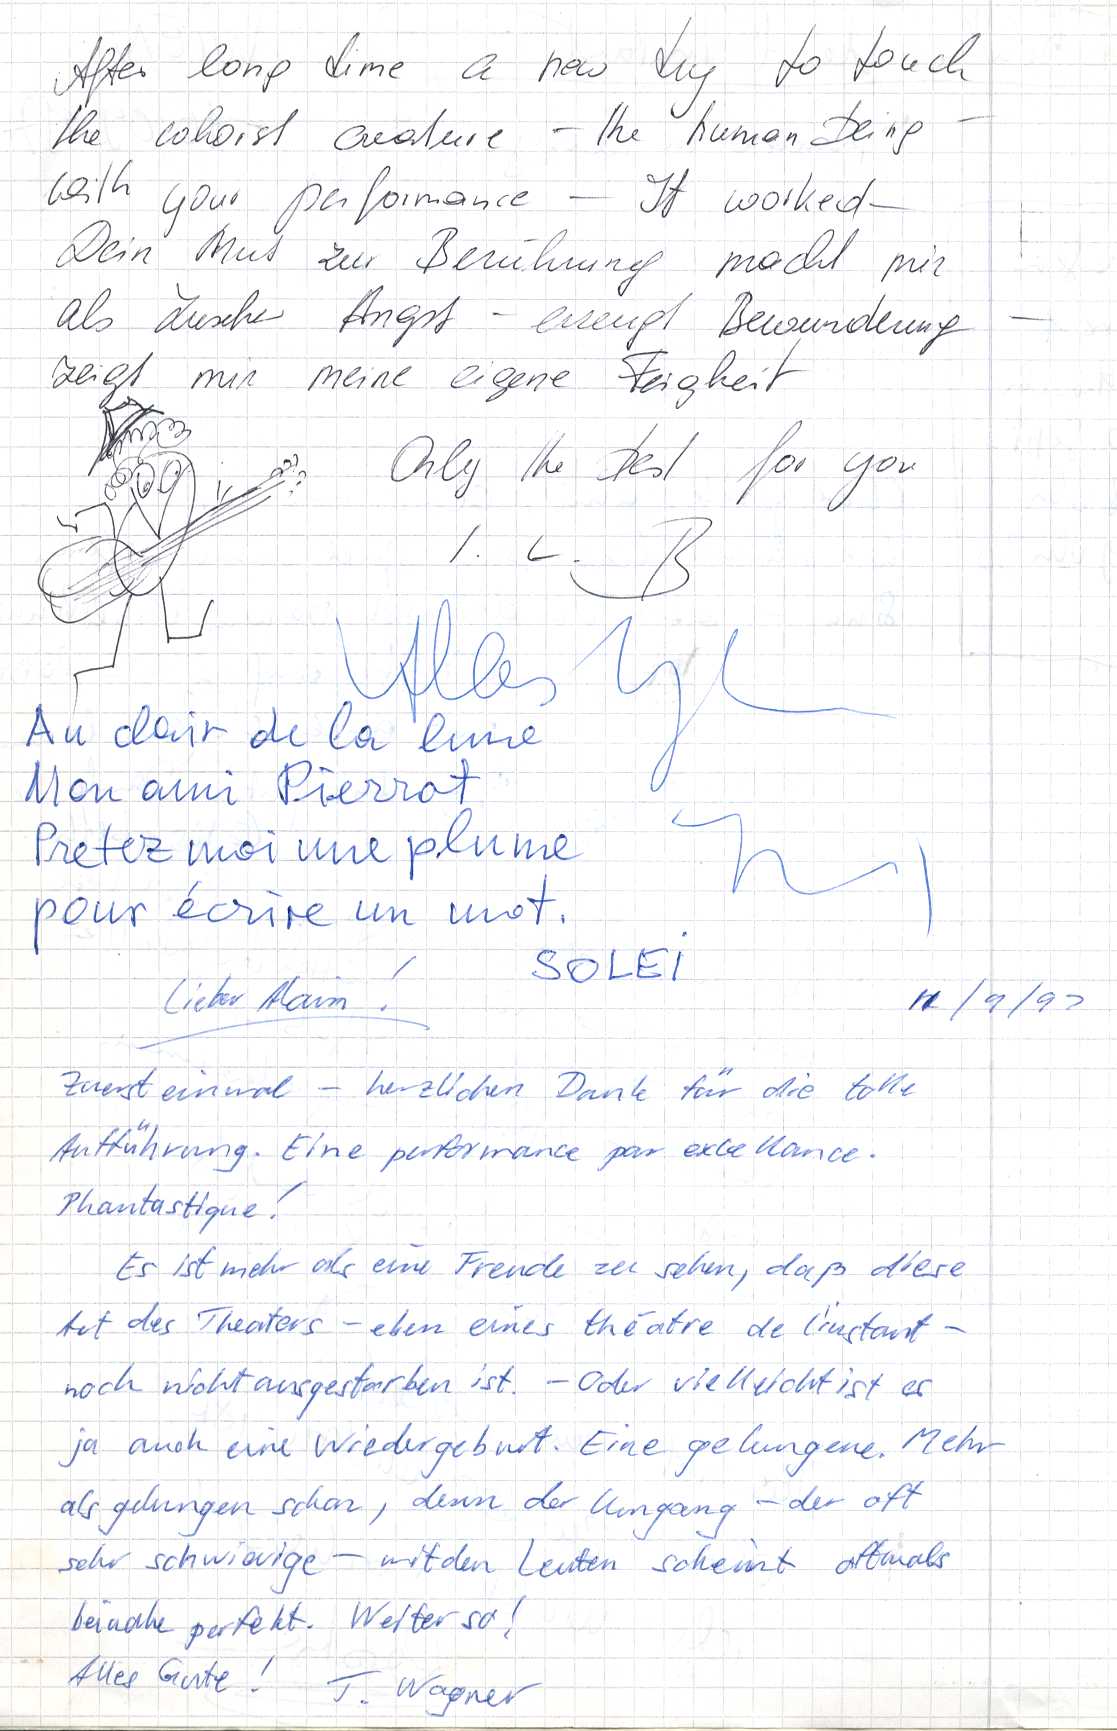 After long time a new try to touch
the cohorist creature – the human being –
with your performance – It worked –
Dein Mut zur Berührung macht mir
als Zuseher Angst – erzeugt Bewunderung –
zeigt mir meine eigene Feigheit
Only the best for you
I. L. B
Alles
Au clair de la lune
Mon ami Pierrot
Pretez moi une plume
pour écrire un mot.
SOLEI
Lieber Alain!
11/9/97
Zuerst einmal – herzlichen Dank für die tolle
Aufführung. Eine performance par excellance.
Phantastique!
Es ist mehr als eine Freude zu sehen, daß diese
Art des Theaters – eben eines théatre de l'instant –
noch nicht ausgestorben ist. – Oder vielleicht ist es
ja auch eine Wiedergeburt. Eine gelungene. Mehr
als gelungen schon, denn der Umgang – der oft
sehr schwierige – mit den Leuten scheint oftmals
beinahe perfekt. Weiter so!
Alles Gute! T. Wagner